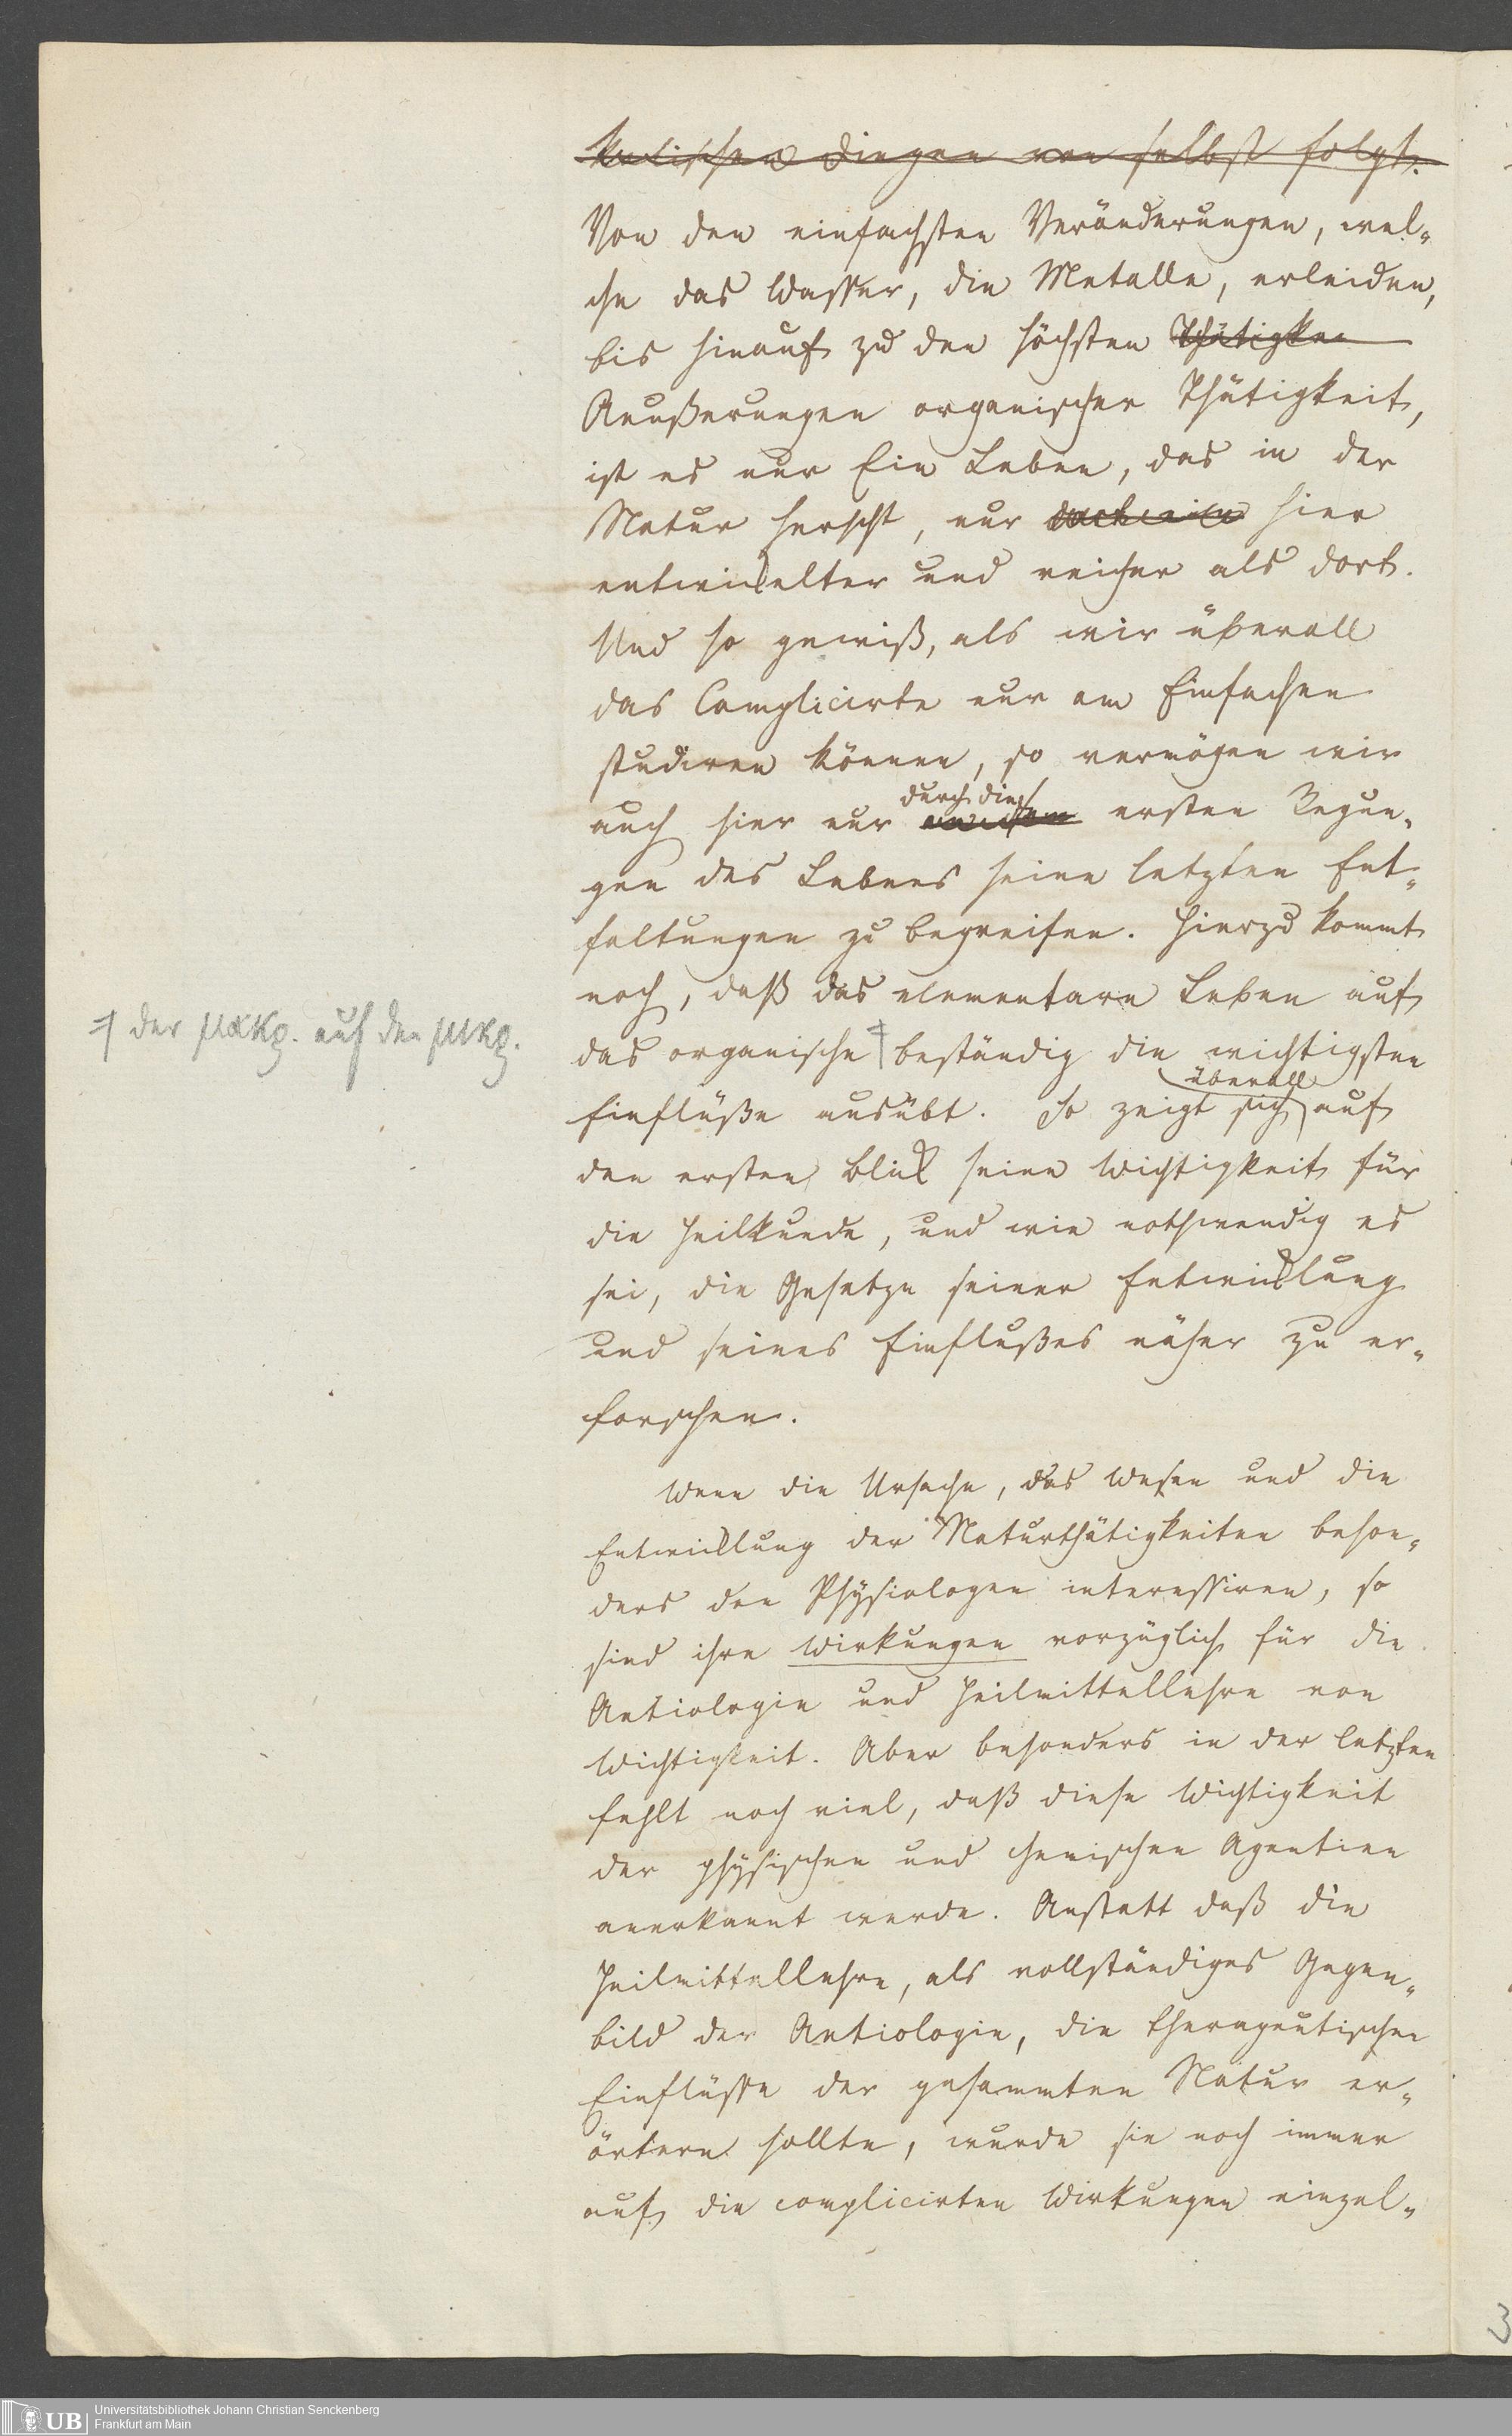 kalischen Dingen von selbst folgt.
Von den einfachsten Veränderungen, wel-
che das Wasser, die Metalle, erleiden,
bis hinauf zu den höchsten Thätigke
Aeußerungen organischer Thätigkeit,
ist es nur Ein Leben, das in der
Natur herscht, nur hier
entwickelter und reicher als dort.
Und so gewiß, als wir überall
das Complicirte nur am Einfachen
studiren können, so vermögen wir
durch die
auch hier nur ersten Regun-
gen des Lebens seine letzten Ent-
faltungen zu begreifen. Hierzu kommt
noch, daß das elementare Leben auf
der μακρ. auf den μικρ.
das organische beständig die wichtigsten
überall
Einflüße ausübt. So zeigt sich auf
den ersten Blick seine Wichtigkeit für
die Heilkunde, und wie nothwendig es
sei, die Gesetze seiner Entwicklung
und seines Einflußes näher zu er-
forschen.
Wenn die Ursache, das Wesen und die
Entwicklung der Naturthätigkeiten beson-
ders den Physiologen interessiren, so
sind ihre Wirkungen vorzüglich für die
Aetiologie und Heilmittellehre von
Wichtigkeit. Aber besonders in der letzten
fehlt noch viel, daß diese Wichtigkeit
der physischen und chemischen Agentien
anerkannt werde. Anstatt daß die
Heilmittellehre, als vollständiges Gegen-
bild der Aetiologie, die therapeutischen
Einflüsse der gesammten Natur er-
örtern sollte, wurde sie noch immer
auf die complicirten Wirkungen einzel-
3
UB Universitätsbibliothek Johann Christian Senckenberg
Frankfurt am Main